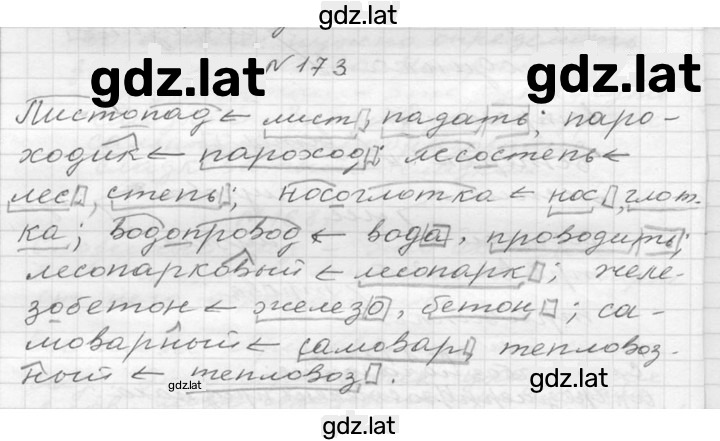 gdz.lat
№173
gdz.lat gdz.lat
Листопад ← лист, падать; паро-
ходик ← пароход; лесостепь ←
лес, степь; носоглотка ← нос, глот-
ка; водопровод ← вода, проводить;
лесопарковый ← лесопарк; желе-
зобетон ← железо, бетон; са-
моварный ← самовар, тепловоз-
ный ← тепловоз.
gdz.lat gdz.lat
gdz.lat